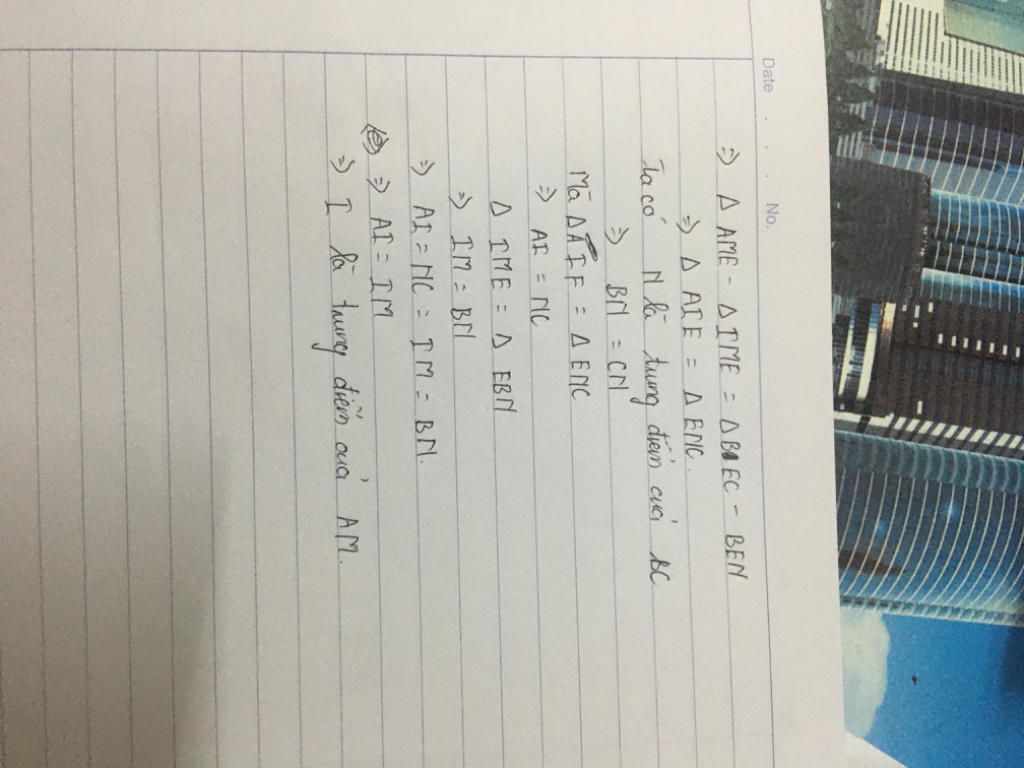 Date No.
=> Δ AME - Δ IME = Δ BEC - BEN
=> Δ AIE = Δ ENC.
Ta có N là trung điểm của BC
=> BN = CN
Mà Δ AIE = Δ ENC
=> AI = NC
Δ IME = Δ EBN
=> IM = BN
=> AI = NC = IM = BN.
=> AI = IM
=> I là trung điểm của AM.